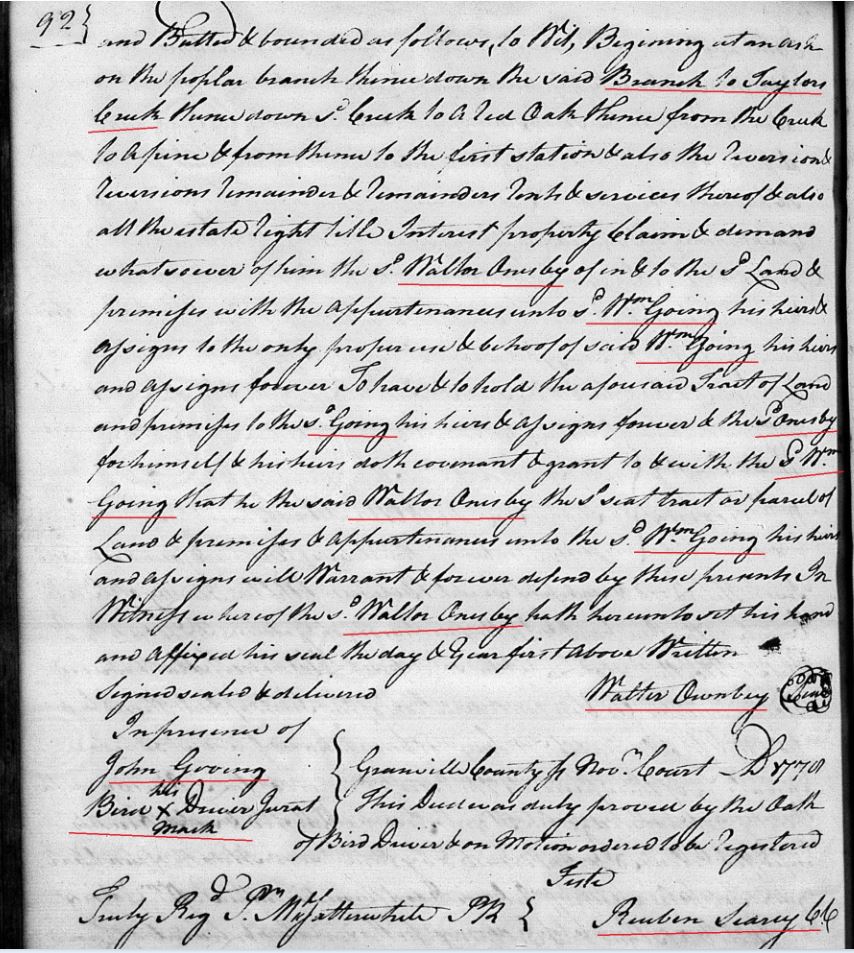 92}
and Butted & bounded as follows, to Wit, Begining at an ash
on the poplar branch thence down the said Branch to Taylors
Creek thence down sd. Creek to a Red Oak thence from the Creek
to a pine & from thence to the first station & also the Reversion &
Reversions Remainder & Remainders Rents & services thereof & also
all the estate Right title Interest property Claim & demand
whatsoever of him the sd. Waltor Onesby of in & to the sd Land &
premises with the appurtenances unto sd. Wm. Going his heirs &
assigns to the only proper use & behoof of said Wm Going his heirs
and assigns forever To have & to hold the aforesaid Tract of Land
and premises to the sd. Going his heirs & assigns forever & the sd Onesby
for himself & his heirs doth covenant & grant to & with the sd Wm
Going that he the said Waltor Onesby the sd seat tract or parcel of
Land & premises & appurtenances unto the sd. Wm Going his heirs
and assigns will Warrant & forever defend by these presents In
Witness whereof the sd. Waltor Onesby hath hereunto set his hand
and affixed his seal the day & Year first above Written
Signed sealed & delivered Walter Ownbey Seal
In presence of
John Gooing
his
Bird X Driver Jurat
mark
Granville County ss Novr. Court AD 177
This Deed was duly proved by the Oath
of Bird Driver & on Motion ordered to be Registered
Teste
Truly Regd. Pr. M Satterwhite PR } Reuben Searcy CC